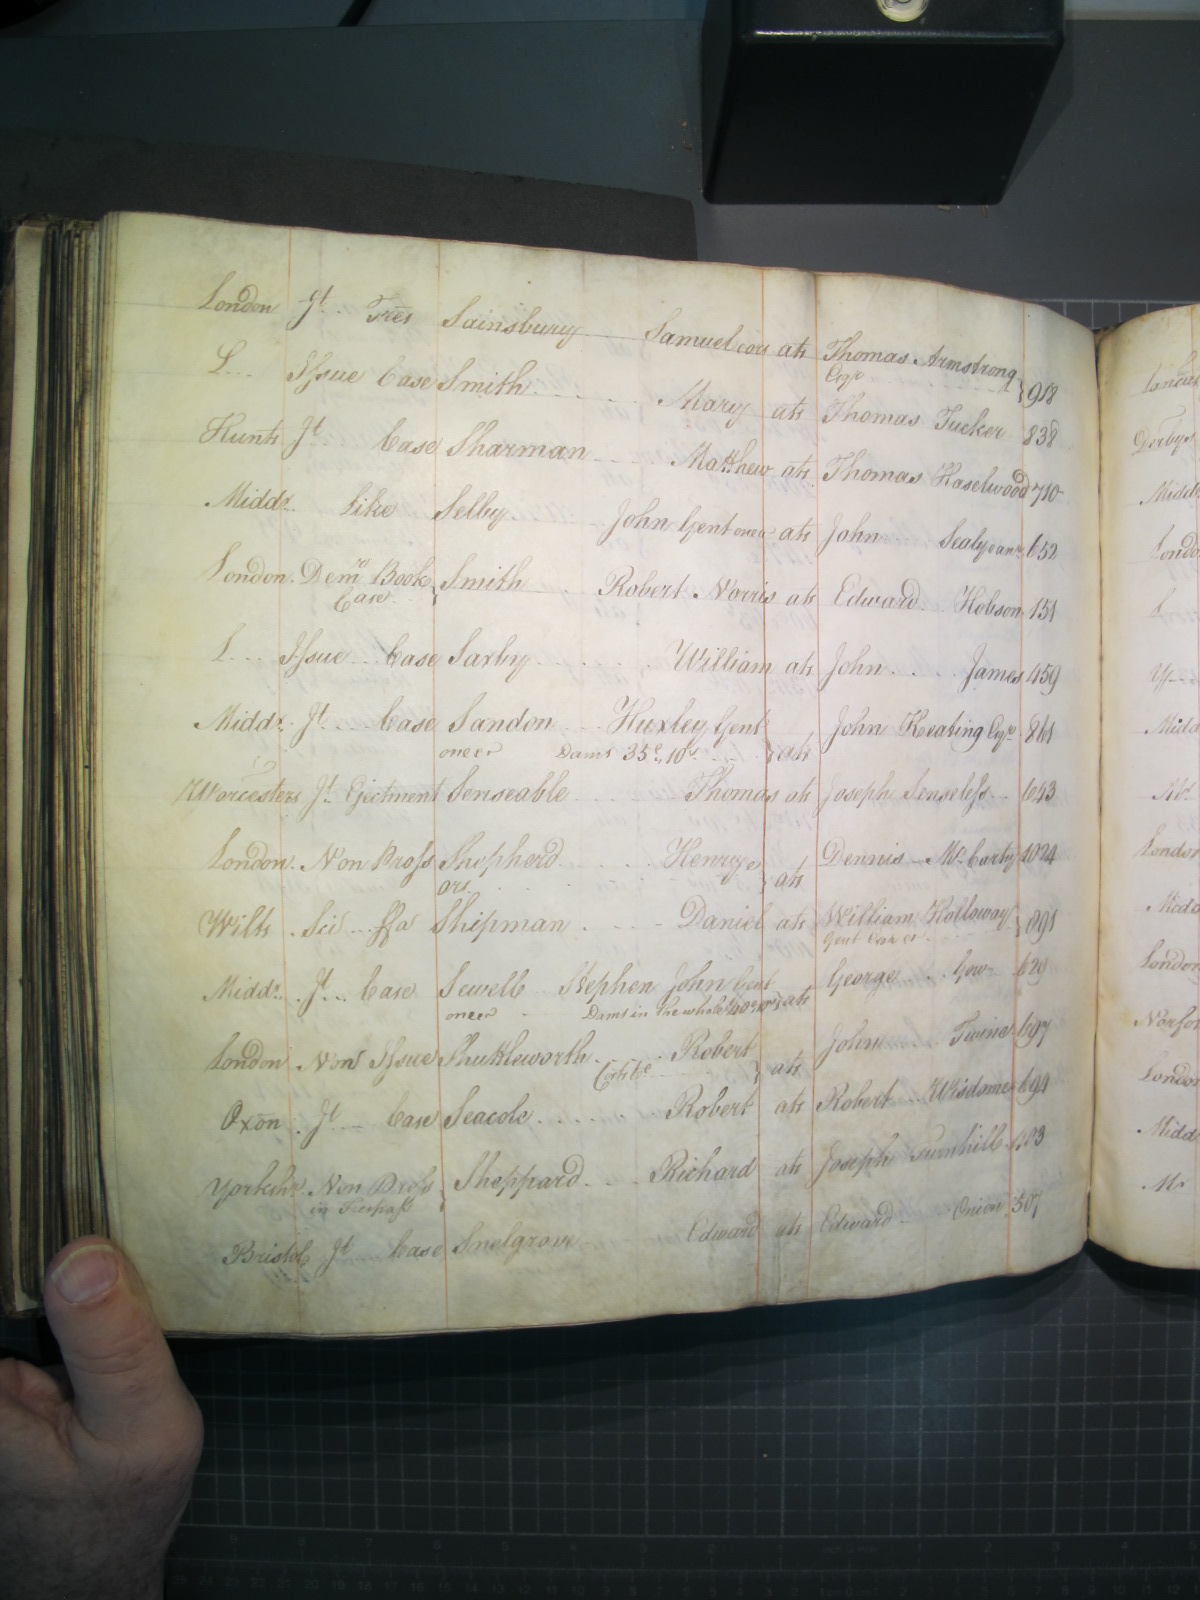 London Jt. Tres Sainsbury Samuel ats Thomas Armstrong
Esqr 918
L... Issue Case Smith Mary ats Thomas Tucker 838
Hunts Jt. Case Sharman Matthew ats Thomas Haselwood 710
Middx. Like Selby John Gent oneer ats John 652
London. Demr Book Smith Robert Norris ats Edward Hobson 151
Case
L... Issue Case Saxby William ats John James 459
Middx. Jt. Case Sandon Huxley Gent John Keating Esqr 861
oneer Dams 35£, 10s ats
Worcesters Jt. Ejectment Senseable Thomas ats Joseph Senseless 643
London. Non Pross Shepherd Henry Dennis Mc. Carty 1024
ats
Wilts Sci ffa Shipman Daniel ats William Holloway
Gent 891
Middx. Jt. Case Sewell Stephen John Gent George Gow 629
oneer Dams in the whole ats
London Non Issue Shuttleworth Robert John Twine 697
ats
Oxon Jt. Case Seacole Robert ats Robert Wisdome 694
Yorkshr. Non Pross Sheppard Richard ats Joseph 403
in Trespass
Bristol Jt. Case Snelgrove Edward ats Edward Onion 507
Derbys
Middx
London
L
Midd
London
Midd
London
Norfo
London
Midd